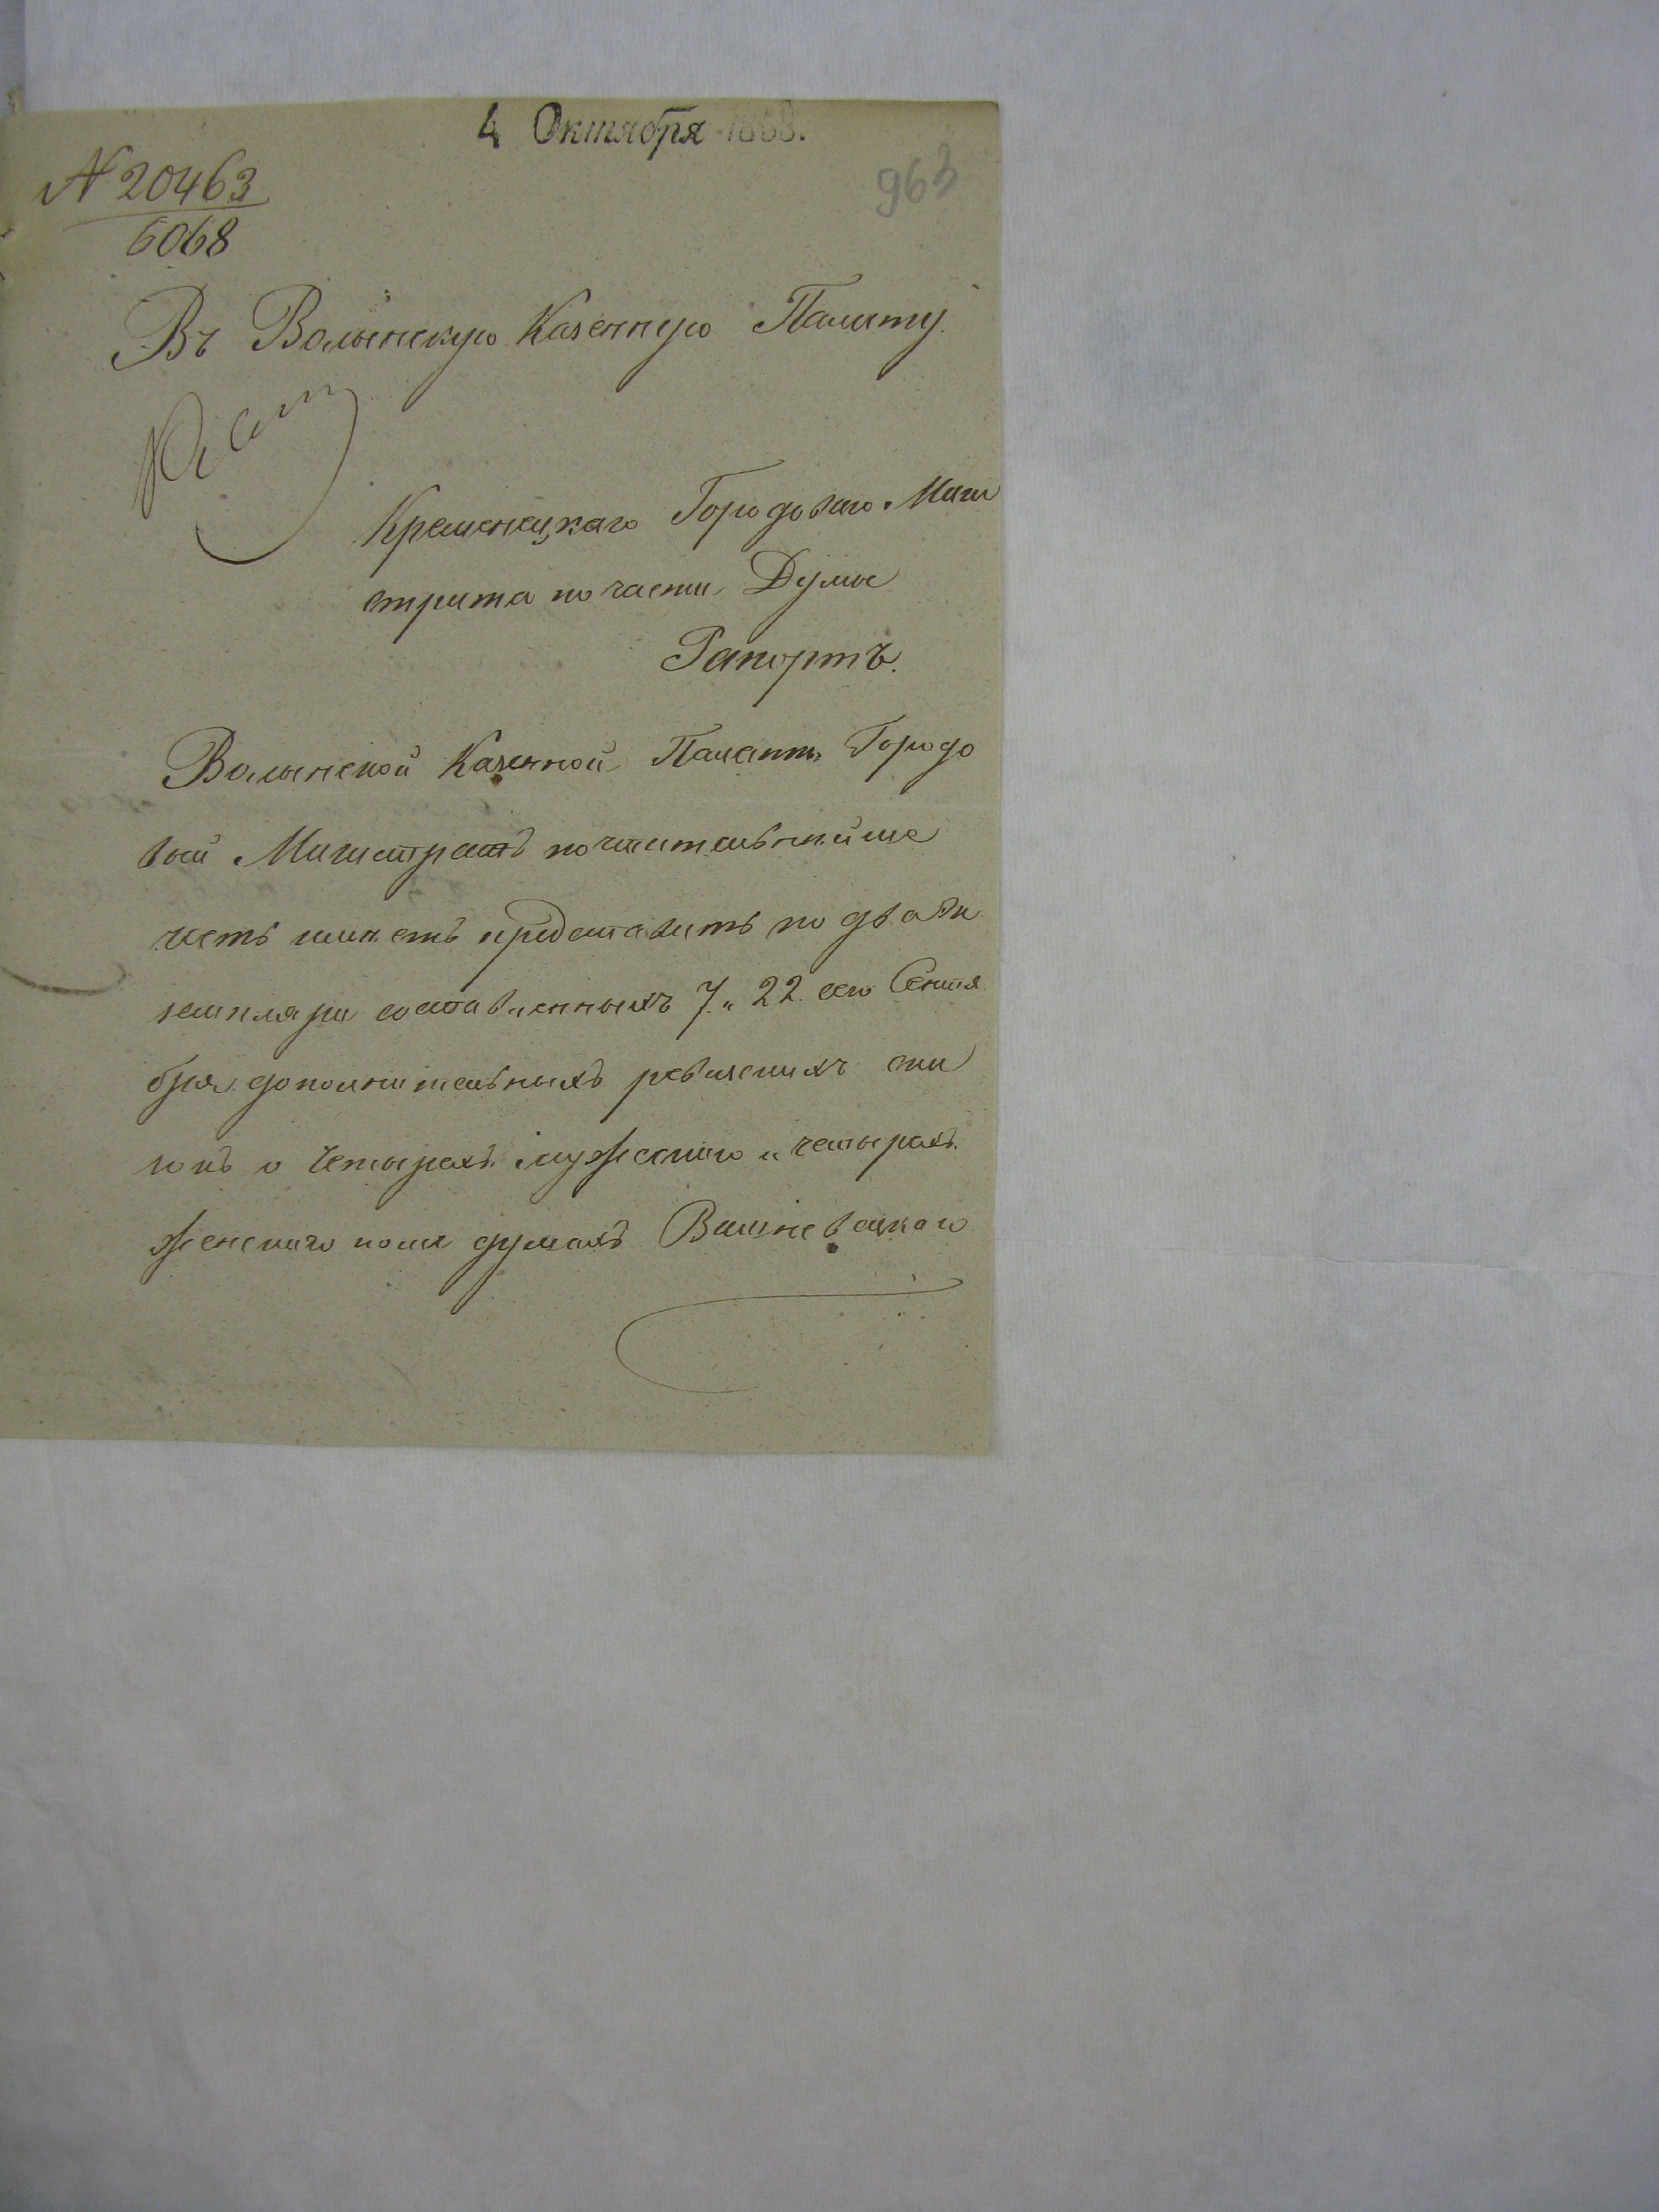 4 Октября 1868.
963
№ 20463
6068
Въ Волынскую Казенную Палату.
Кременецкаго Городоваго Маги
страта по части Думы
Рапортъ.
Волынской Казенной Палатѣ Городо
вый Магистратъ почтительнѣйше
честь имѣетъ представить по два эк
земпляра составленныхъ 7 и 22 сего Сентя
бря дополнительныхъ ревизскихъ ска
зокъ о четырехъ мужескаго и четырехъ
женскаго пола душахъ Вишневецкаго